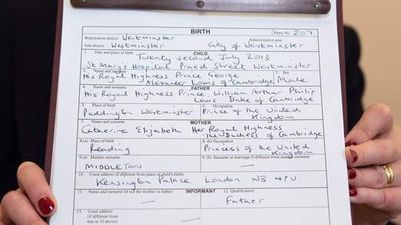 BIRTH
Entry No. 207
Registration district Westminster
Administrative area
Sub-district Westminster City of Westminster
CHILD
1. Date and place of birth Twenty second July 2013
St Mary's Hospital Praed Street Westminster
2. Name and surname His Royal Highness Prince George
Alexander Louis of Cambridge
3. Sex
Male
FATHER
4. Name and surname
His Royal Highness Prince William Arthur Philip
Louis Duke of Cambridge
5. Place of birth
Paddington Westminster
6. Occupation
Prince of the United
Kingdom
MOTHER
7. Name and surname
Catherine Elizabeth Her Royal Highness
The Duchess of Cambridge
8.(a) Place of birth
Reading
8.(b) Occupation
Princess of the United
Kingdom
9.(a) Maiden surname
MIDDLETON
9.(b) Surname at marriage if different from maiden surname
10. Usual address (if different from place of child's birth)
Kensington Palace London W8 4PU
INFORMANT
11. Name and surname (if not the mother or father)
12. Qualification
Father
13. Usual address
(if different from
that in 10 above)